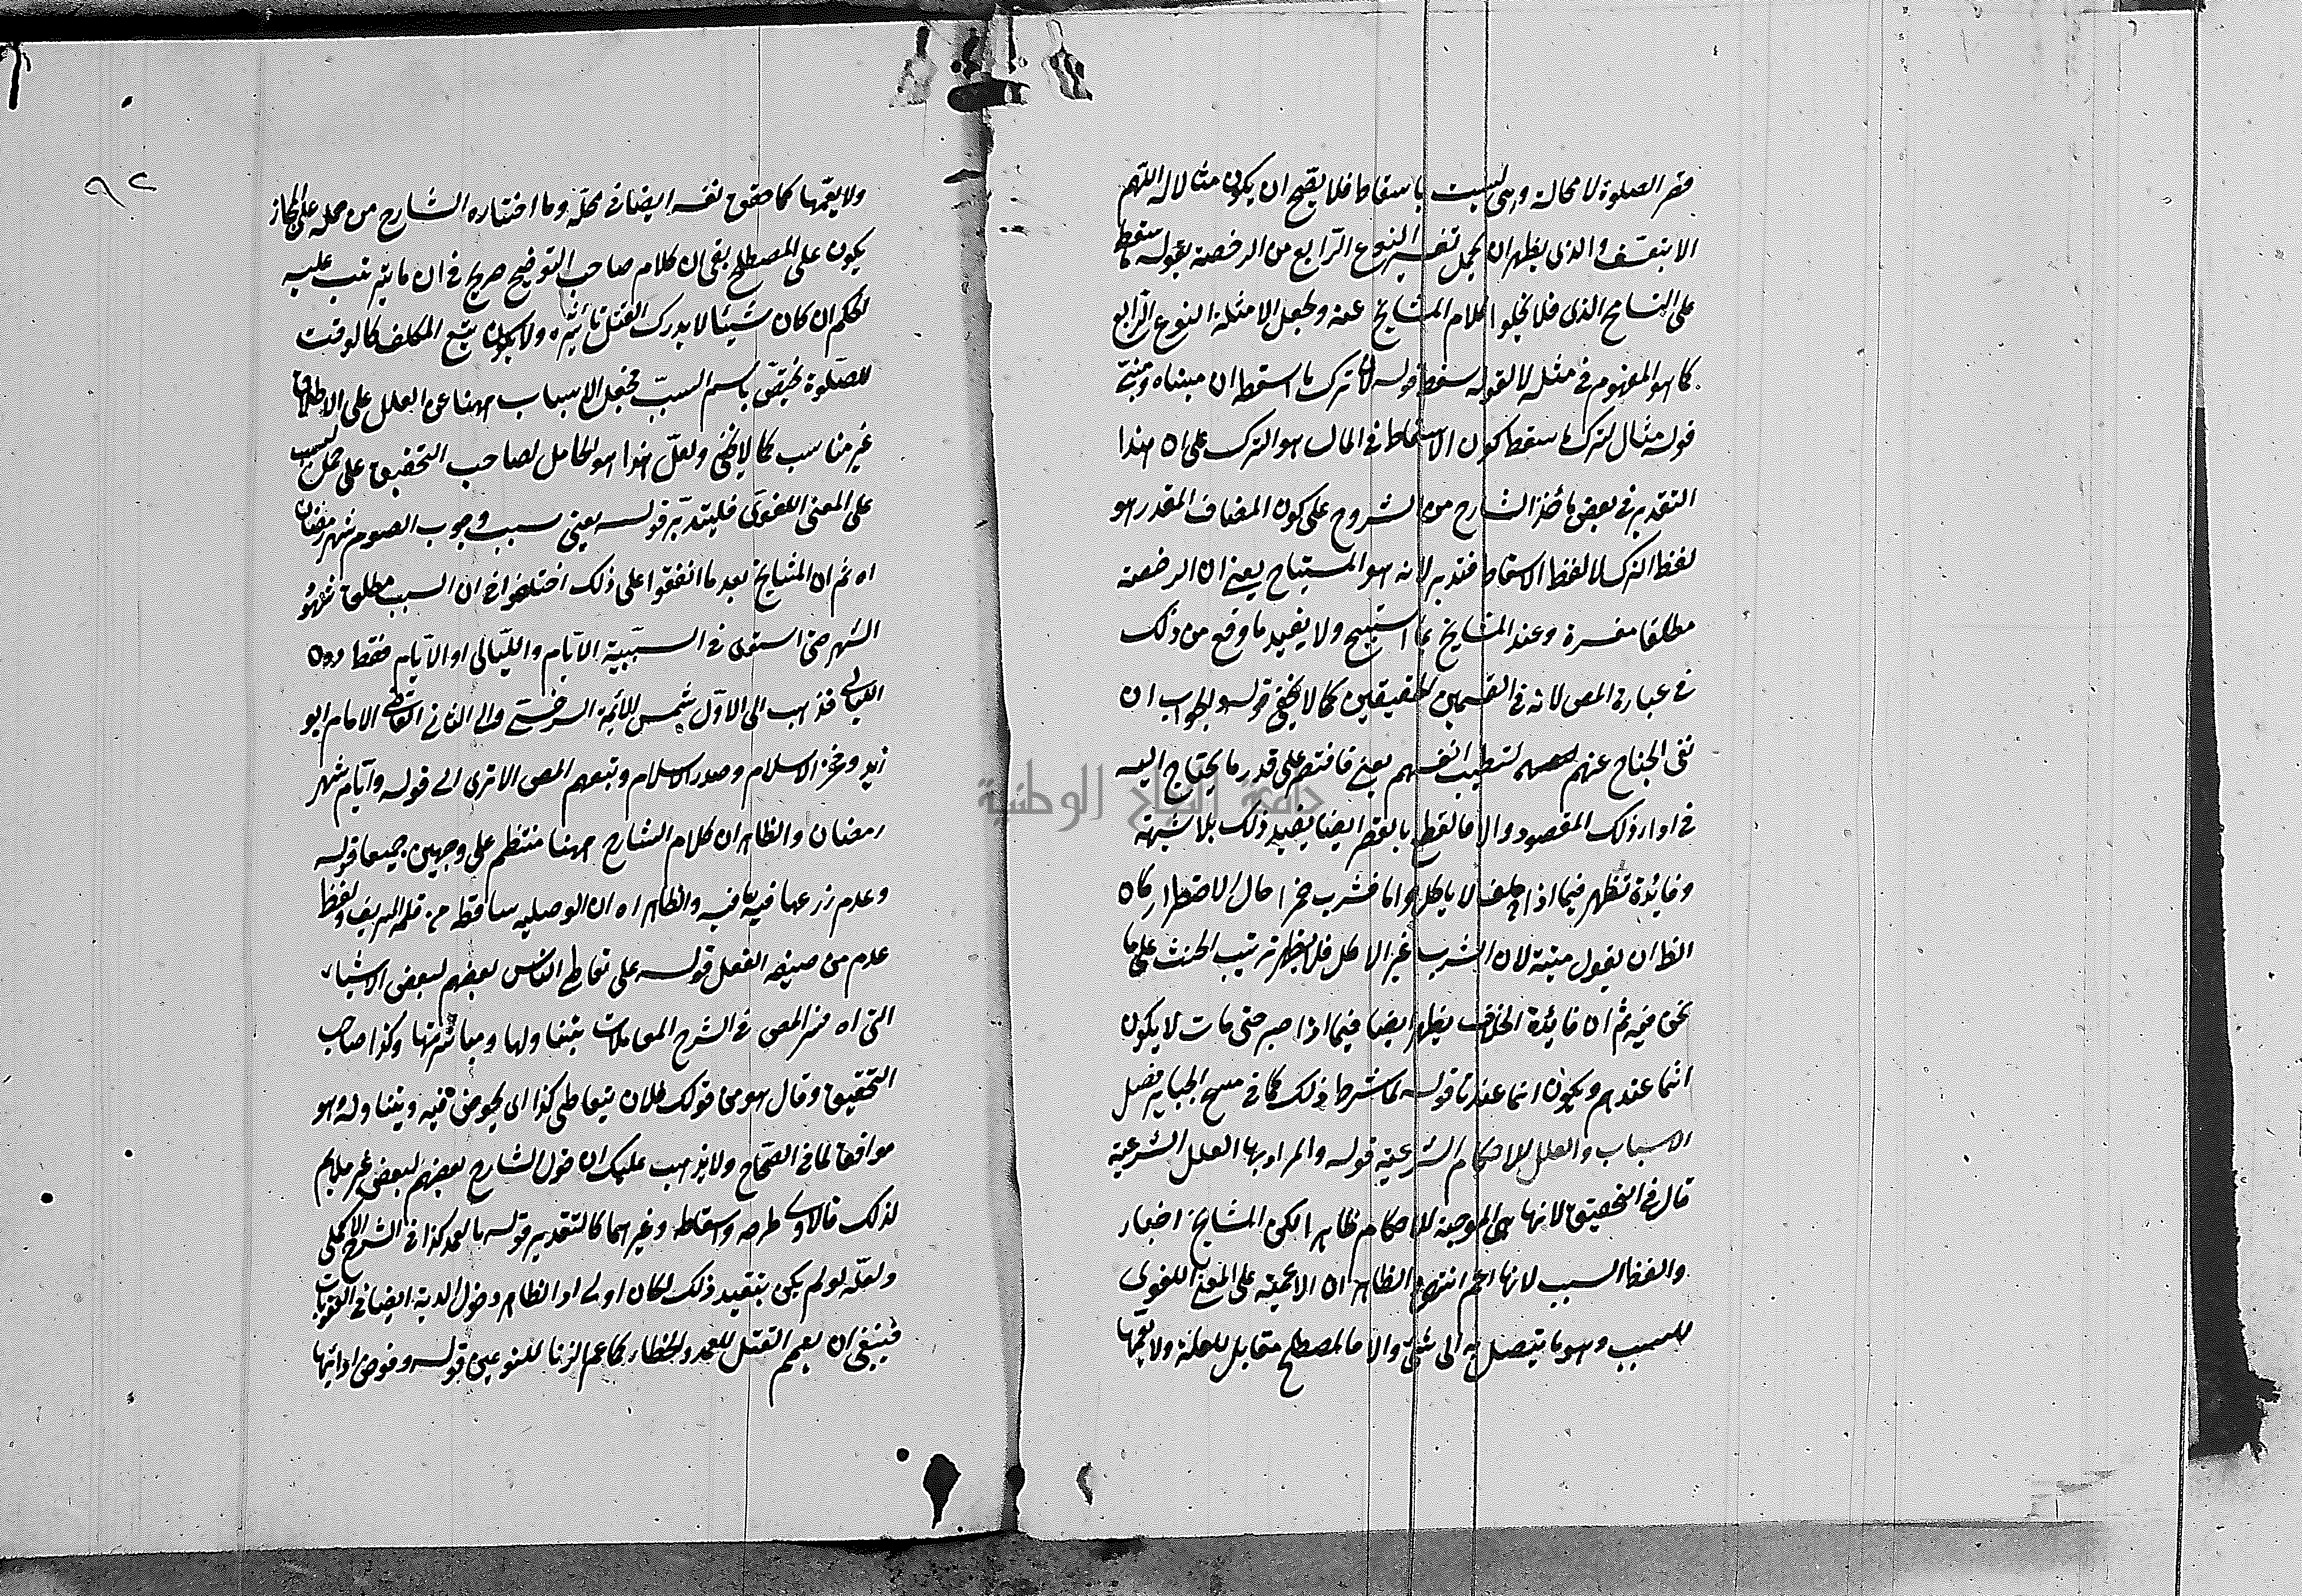 قصر الصلوة لا محالة وهى ليست باسقاط فلا يصح ان يكون مثالا له اللهم
الا بتعسف والذى يظهر ان يحمل تفسير النوع الرابع من الرخصة بقوله ما سقط
على التسامح الذى فلا يخلوا كلام المشايخ عنه ويجعل الامثلة النوع الرابع
كما هو المفهوم فى مثله لا لقوله سقط قوله لان ترك ما اسقط ان مبناه
قوله مثال لترك ما سقط كون الاسقاط فى المال هو الترك على ان هذا
التقدير فى بعض مأخذ الشارح من الشروح على كون المضاف المقدر هو
لفظ الترك لا لفظ الاسقاط فتدبر لانه هو المستباح يعنى ان الرخصة
مطلقا مفسرة وعند المشايخ بما استبيح ولا يفيد ما وقع من ذلك
فى عبارة المص لانه فى القسمين الحقيقيين كما لا يخفى قوله والجواب ان
نفى الجناح عنهم لتطييب انفسهم يعنى فاقتصر على قدر ما يحتاج اليه
فى اداء ذلك المقصود والا فالقطع بالقصر ايضا يفيد ذلك بلا شبهة
وفائدة تظهر فيما اذا حلف لا ياكل حراما فشرب خمرا حال الاضطرار كان
الظ ان يقول ميتة لان الشرب غير الاكل فلا يظهر ترتيب الحنث على ما
نحن فيه ثم ان فائدة الخلاف يظهر ايضا فيما اذا صبر حتى مات لا يكون
اثما عندهم ويكون اثما عندنا قوله كما شرط ذلك كما فى مسح الجباير فصل
الاسباب والعلل للاحكام الشرعية قوله والمراد بها العلل الشرعية
قال فى التحقيق لانها هى الموجبة للاحكام ظاهرا لكن المشايخ اختار
والفظ السبب لانها اعم انتهى والظاهر ان الاعمية على المعنى اللغوى
للسبب وهو ما يتصل به الى شئ والا فالمصطلح مقابل للعلة ولا يعمها
٩٢
ولا يعمها كما حقق نفسه ايضا فى محله وما اختاره الشارح من حمله على المجاز
يكون على المصطلح بقى ان كلام صاحب التوضيح صريح فى ان ما يترتب عليه
الحكم ان كان شيئا لا يدرك العقل تأثيره ولا يكون بصنع المكلف كالوقت
للصلوة يختص باسم السبب فجعل الاسباب ههنا عن العلل على الاطلاق
غير مناسب كما لا يخفى ولعل هذا هو الحامل لصاحب التحقيق على حمل السبب
على المعنى اللغوى فليتدبر قوله يعنى سبب وجوب الصوم شهر رمضان
اه ثم ان المشايخ بعد ما اتفقوا على ذلك اختلفوا فى ان السبب مطلق شهود
الشهر حتى استوى فى السببية الايام والليالى او الايام فقط دون
الليالى فذهب الى الاول شمس الائمة السرخسى والى الثانى القاضى الامام ابو
زيد وفخر الاسلام وصدر الاسلام وتبعهم المص الا ترى الى قوله وايام شهر
رمضان والظاهر ان كلام الشارح ههنا منتظم على وجهين جميعا قوله
وعدم زرعها فيه ما فيه والظاهر اه ان الوصلية ساقطة من قلمه الشريف ولفظ
عدم من صيغة الفعل قوله على تعاطى الناس بعضهم لبعض الاشياء
التى اه فسر المص فى الشرح المعاملات بتناولها ومباشرتها وكذا صاحب
التحقيق وقال هو من قولك فلان يتعاطى كذا اى يخوض فيه ويتناوله وهو
موافق لما فى الصحاح ولا يذهب عليك ان قول الشارح بعضهم لبعض غير ملايم
لذلك فالاولى طرحه واسقاطه وغيرهما كالتقدير قوله بالعمد كذا فى الشرح الاكملى
ولعله لو لم يكن بتقييد ذلك لكان اولى اذ الظاهر دخول الدية ايضا فى العقوبات
فينبغى ان يعمم القتل للعمد والخطاء كما عم الزنا للنوعين قوله وفوض ادائها